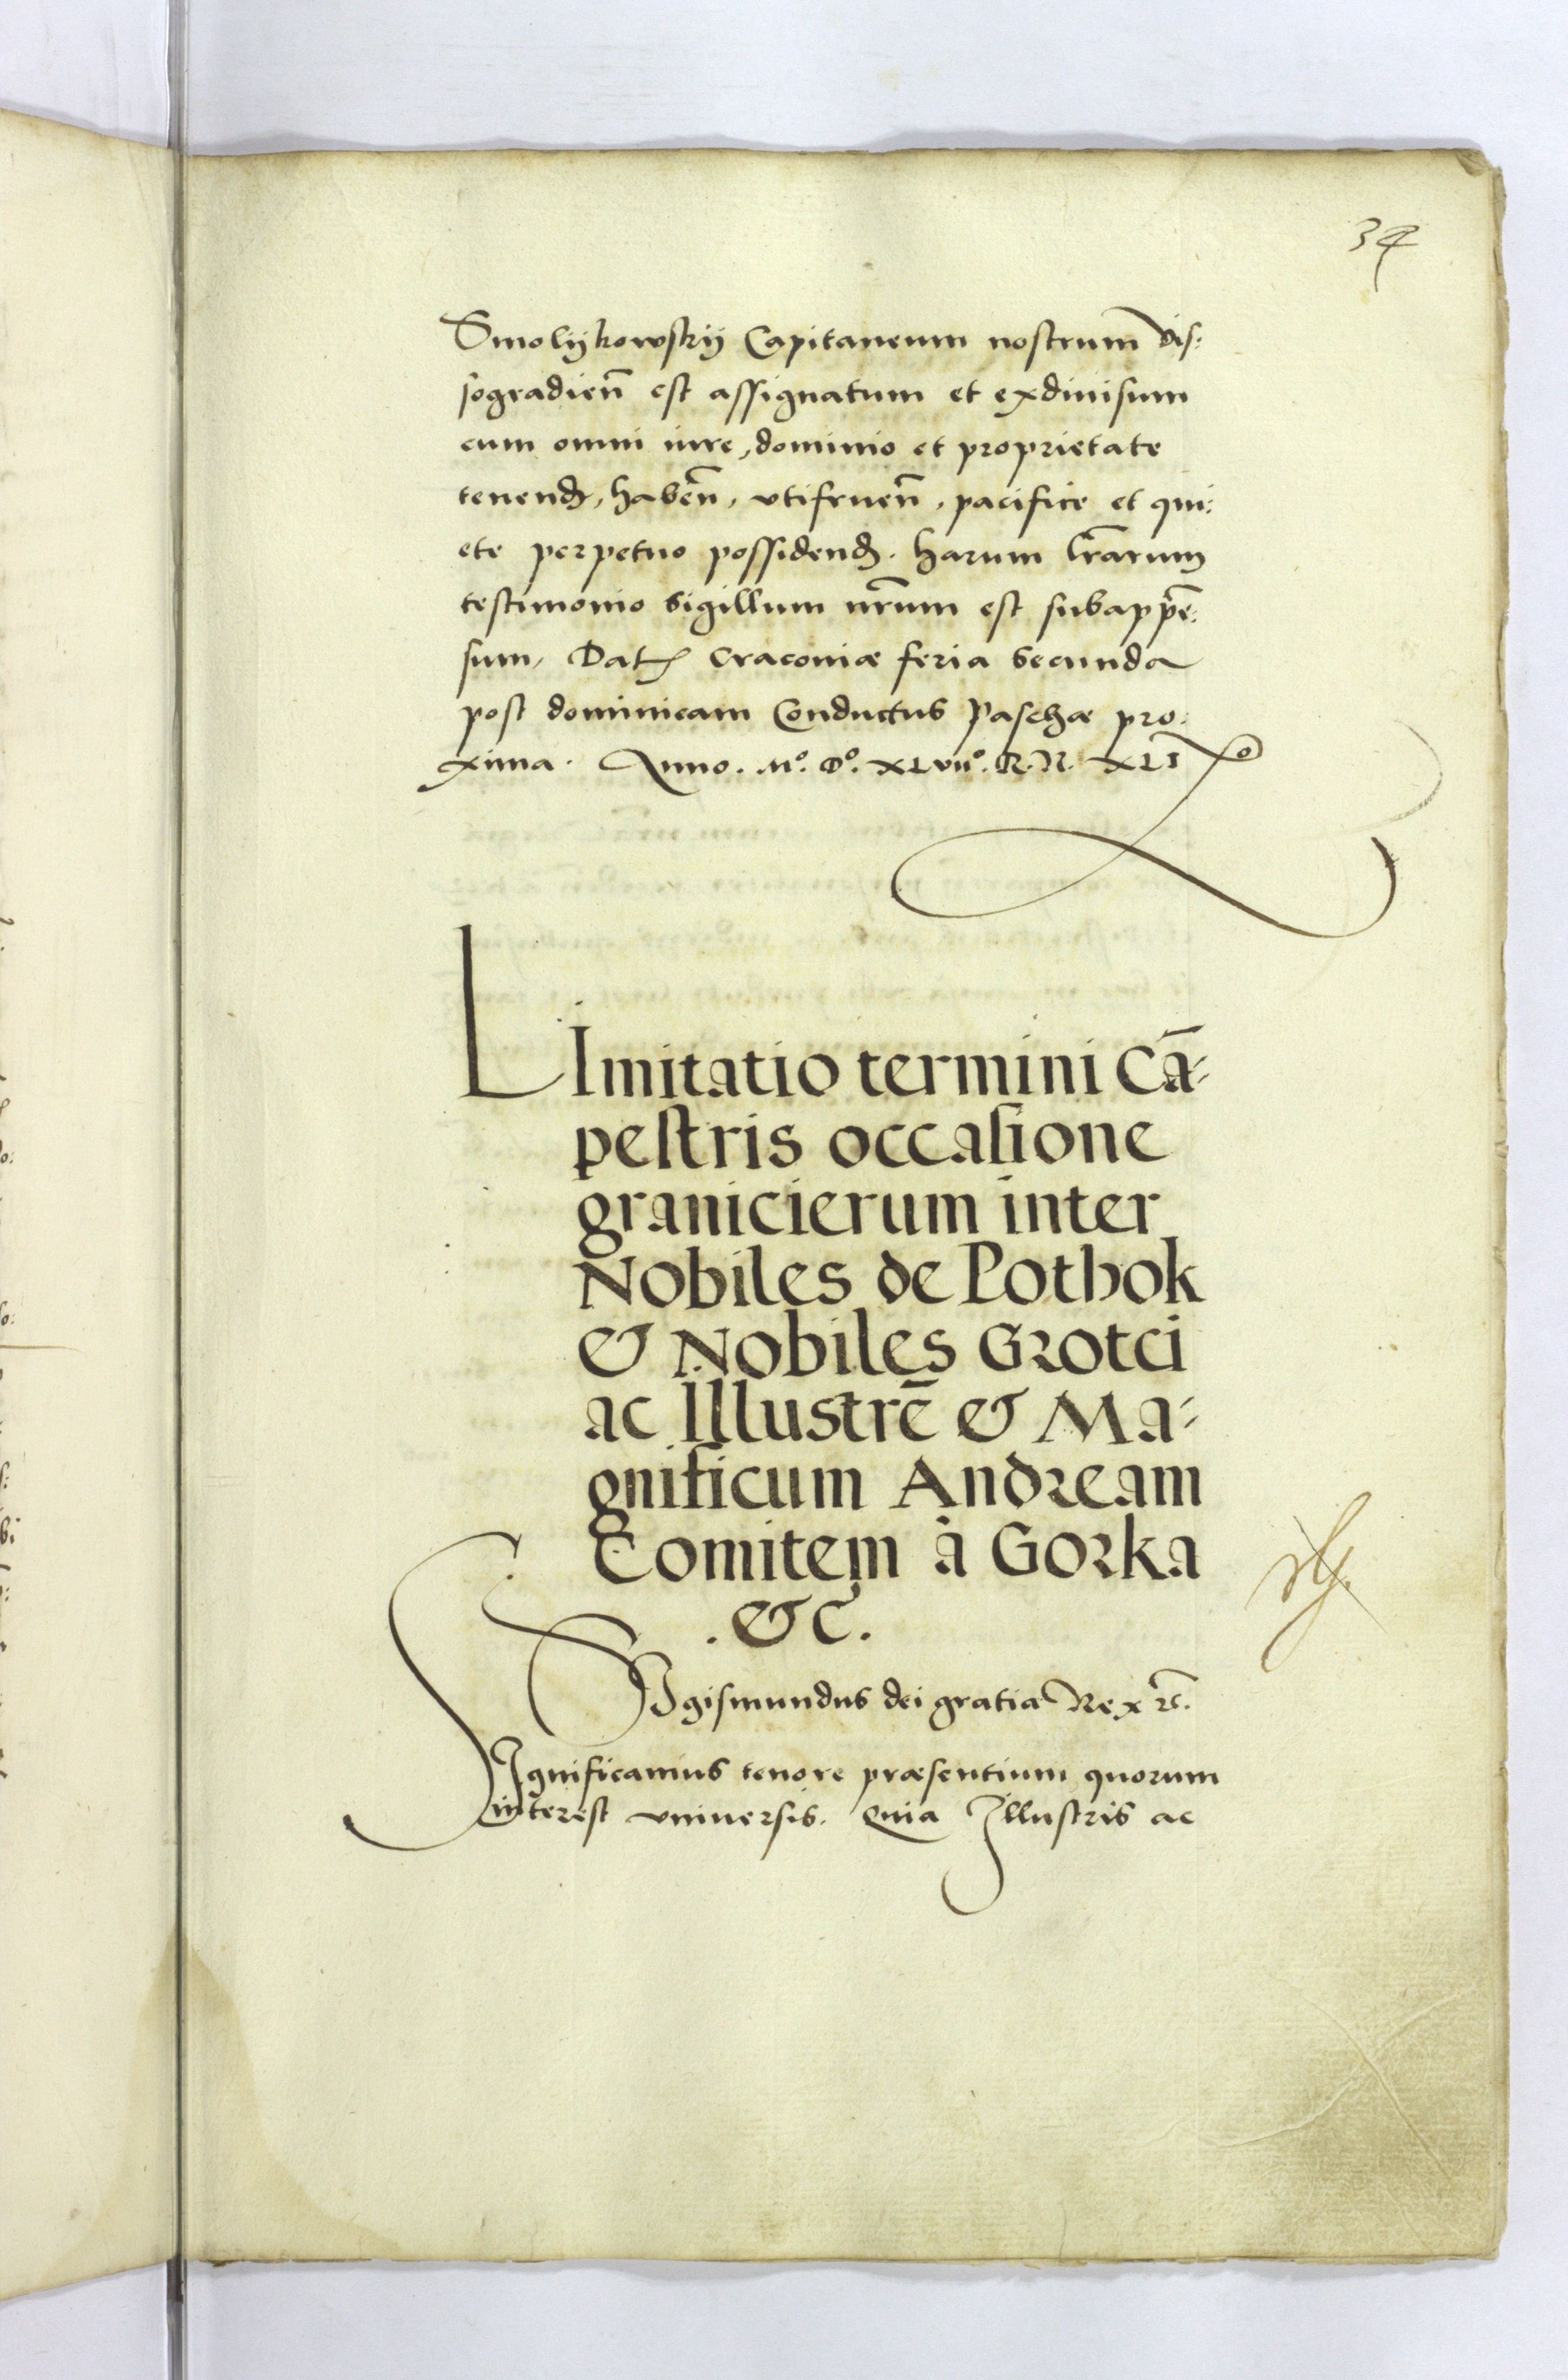 34
Smolijkowskij Capitaneum nostrum vis:
sogradien̄ est assignatum et exdiuisum
cum omni iure, dominio et proprietate
tenend̄, haben̄, vtifruen̄, pacifice et qui:
ete perpetuo possidend̄. harum lr̄arum
testimonio sigillum nr̄um est subappē:
sum, Dat̄ Cracoviæ feria secunda
post dominicam Conductus Paschæ pro:
xima. Anno. Mº. Dº. XLVIIº. R. N. XLIº
LImitatio termini Cā-
pestris occasione
granicierum inter
Nobiles de Pothok
& Nobiles Grotci
ac Illustrē & Ma-
gnificum Andream
Comitem à Gorka
.&c.
SIgismundus dei gratia Rex &c.
SIgnificamus tenore præsentium quorum
interest vniuersis. Quia Illustris ac